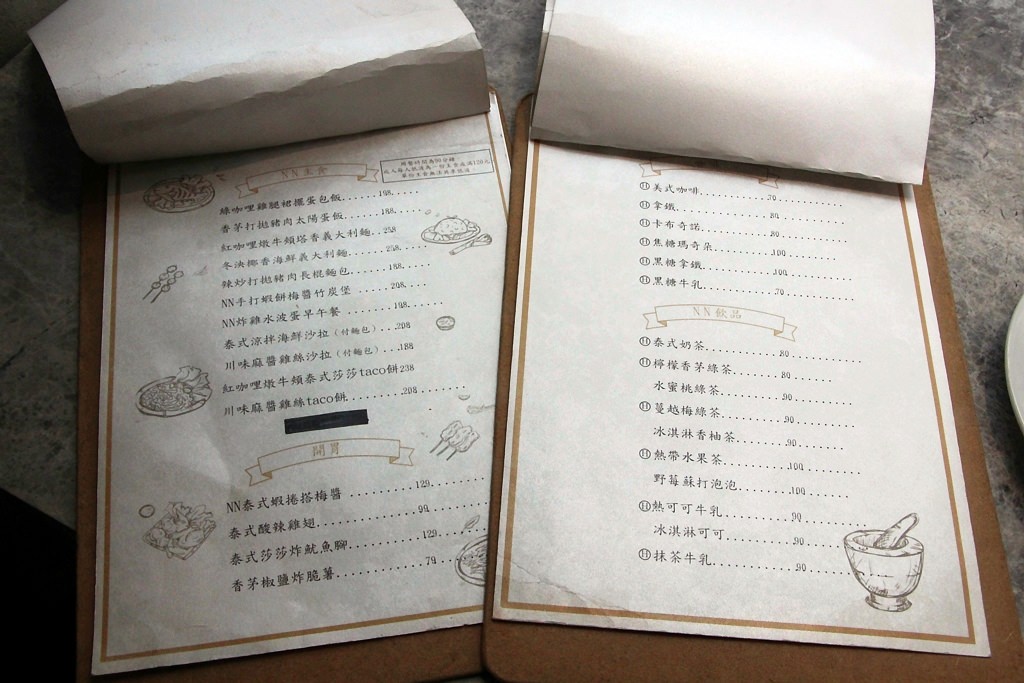 NN主食
用餐時間為90分鐘
成人每人低消為一份主食或滿120元
綠咖哩雞腿裙擺蛋包飯......198.....
香茅打拋豬肉太陽蛋飯......188....
紅咖哩燉牛頰塔香義大利麵..258
冬泱椰香海鮮義大利麵......258....
辣炒打拋豬肉長棍麵包......188....
NN手打蝦餅梅醬竹炭堡......208....
NN炸雞水波蛋早午餐......198......
泰式涼拌海鮮沙拉(付麵包)...208
川味麻醬雞絲沙拉(付麵包)...188
紅咖哩燉牛頰泰式莎莎taco餅238
川味麻醬雞絲taco餅......208......
開胃
NN泰式蝦捲搭梅醬.........129...
泰式酸辣雞翅.............99....
泰式莎莎炸魷魚腳.........129...
香茅椒鹽炸脆薯...........79...
Ⓗ美式咖啡.........70.........
Ⓗ拿鐵.........80.........
Ⓗ卡布奇諾.........80.........
Ⓗ焦糖瑪奇朵.........100.........
Ⓗ黑糖拿鐵.........100.........
Ⓗ黑糖牛乳.........70.........
NN飲品
Ⓗ泰式奶茶.........80.........
Ⓗ檸檬香茅綠茶.......80.........
水蜜桃綠茶.........90.........
Ⓗ蔓越梅綠茶.........90.........
冰淇淋香柚茶.......90.........
Ⓗ熱帶水果茶.........100.........
野莓蘇打泡泡.......100.........
Ⓗ熱可可牛乳.........90.........
冰淇淋可可.........90.........
Ⓗ抹茶牛乳.........90.........